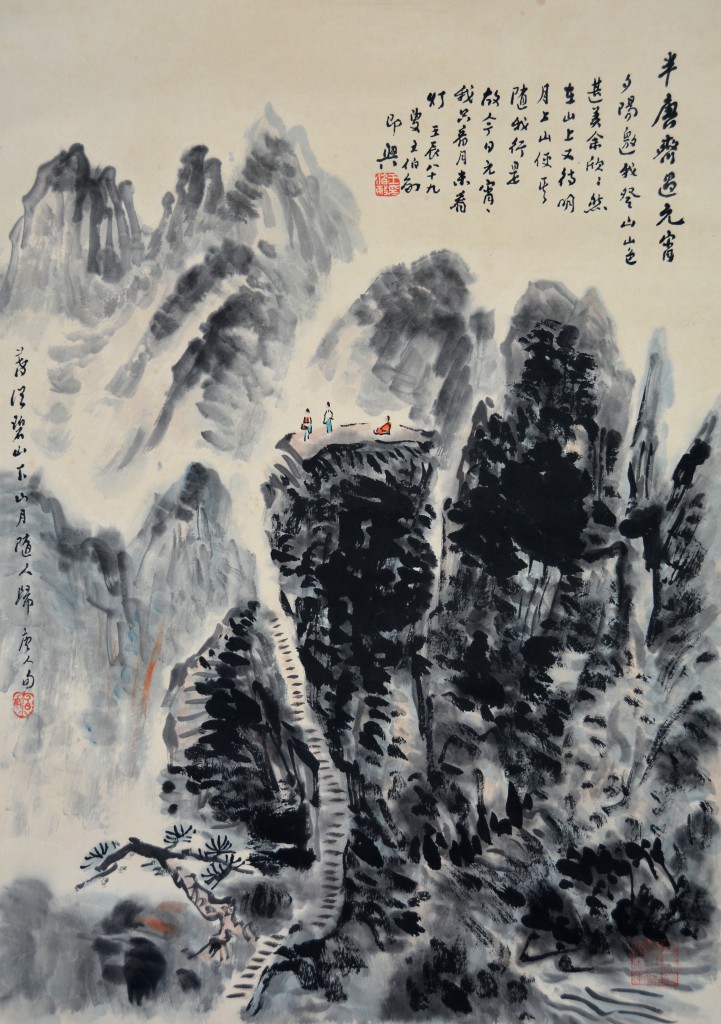 半唐齋過元宵
夕陽邀我登山山色
甚美余欣〻然
在山上又待明
月上山便
隨我行是
故今日元宵〻
我只看月未看
灯 壬辰八十九
叟王伯敏
即興
暮從碧山下山月隨人歸 唐人句